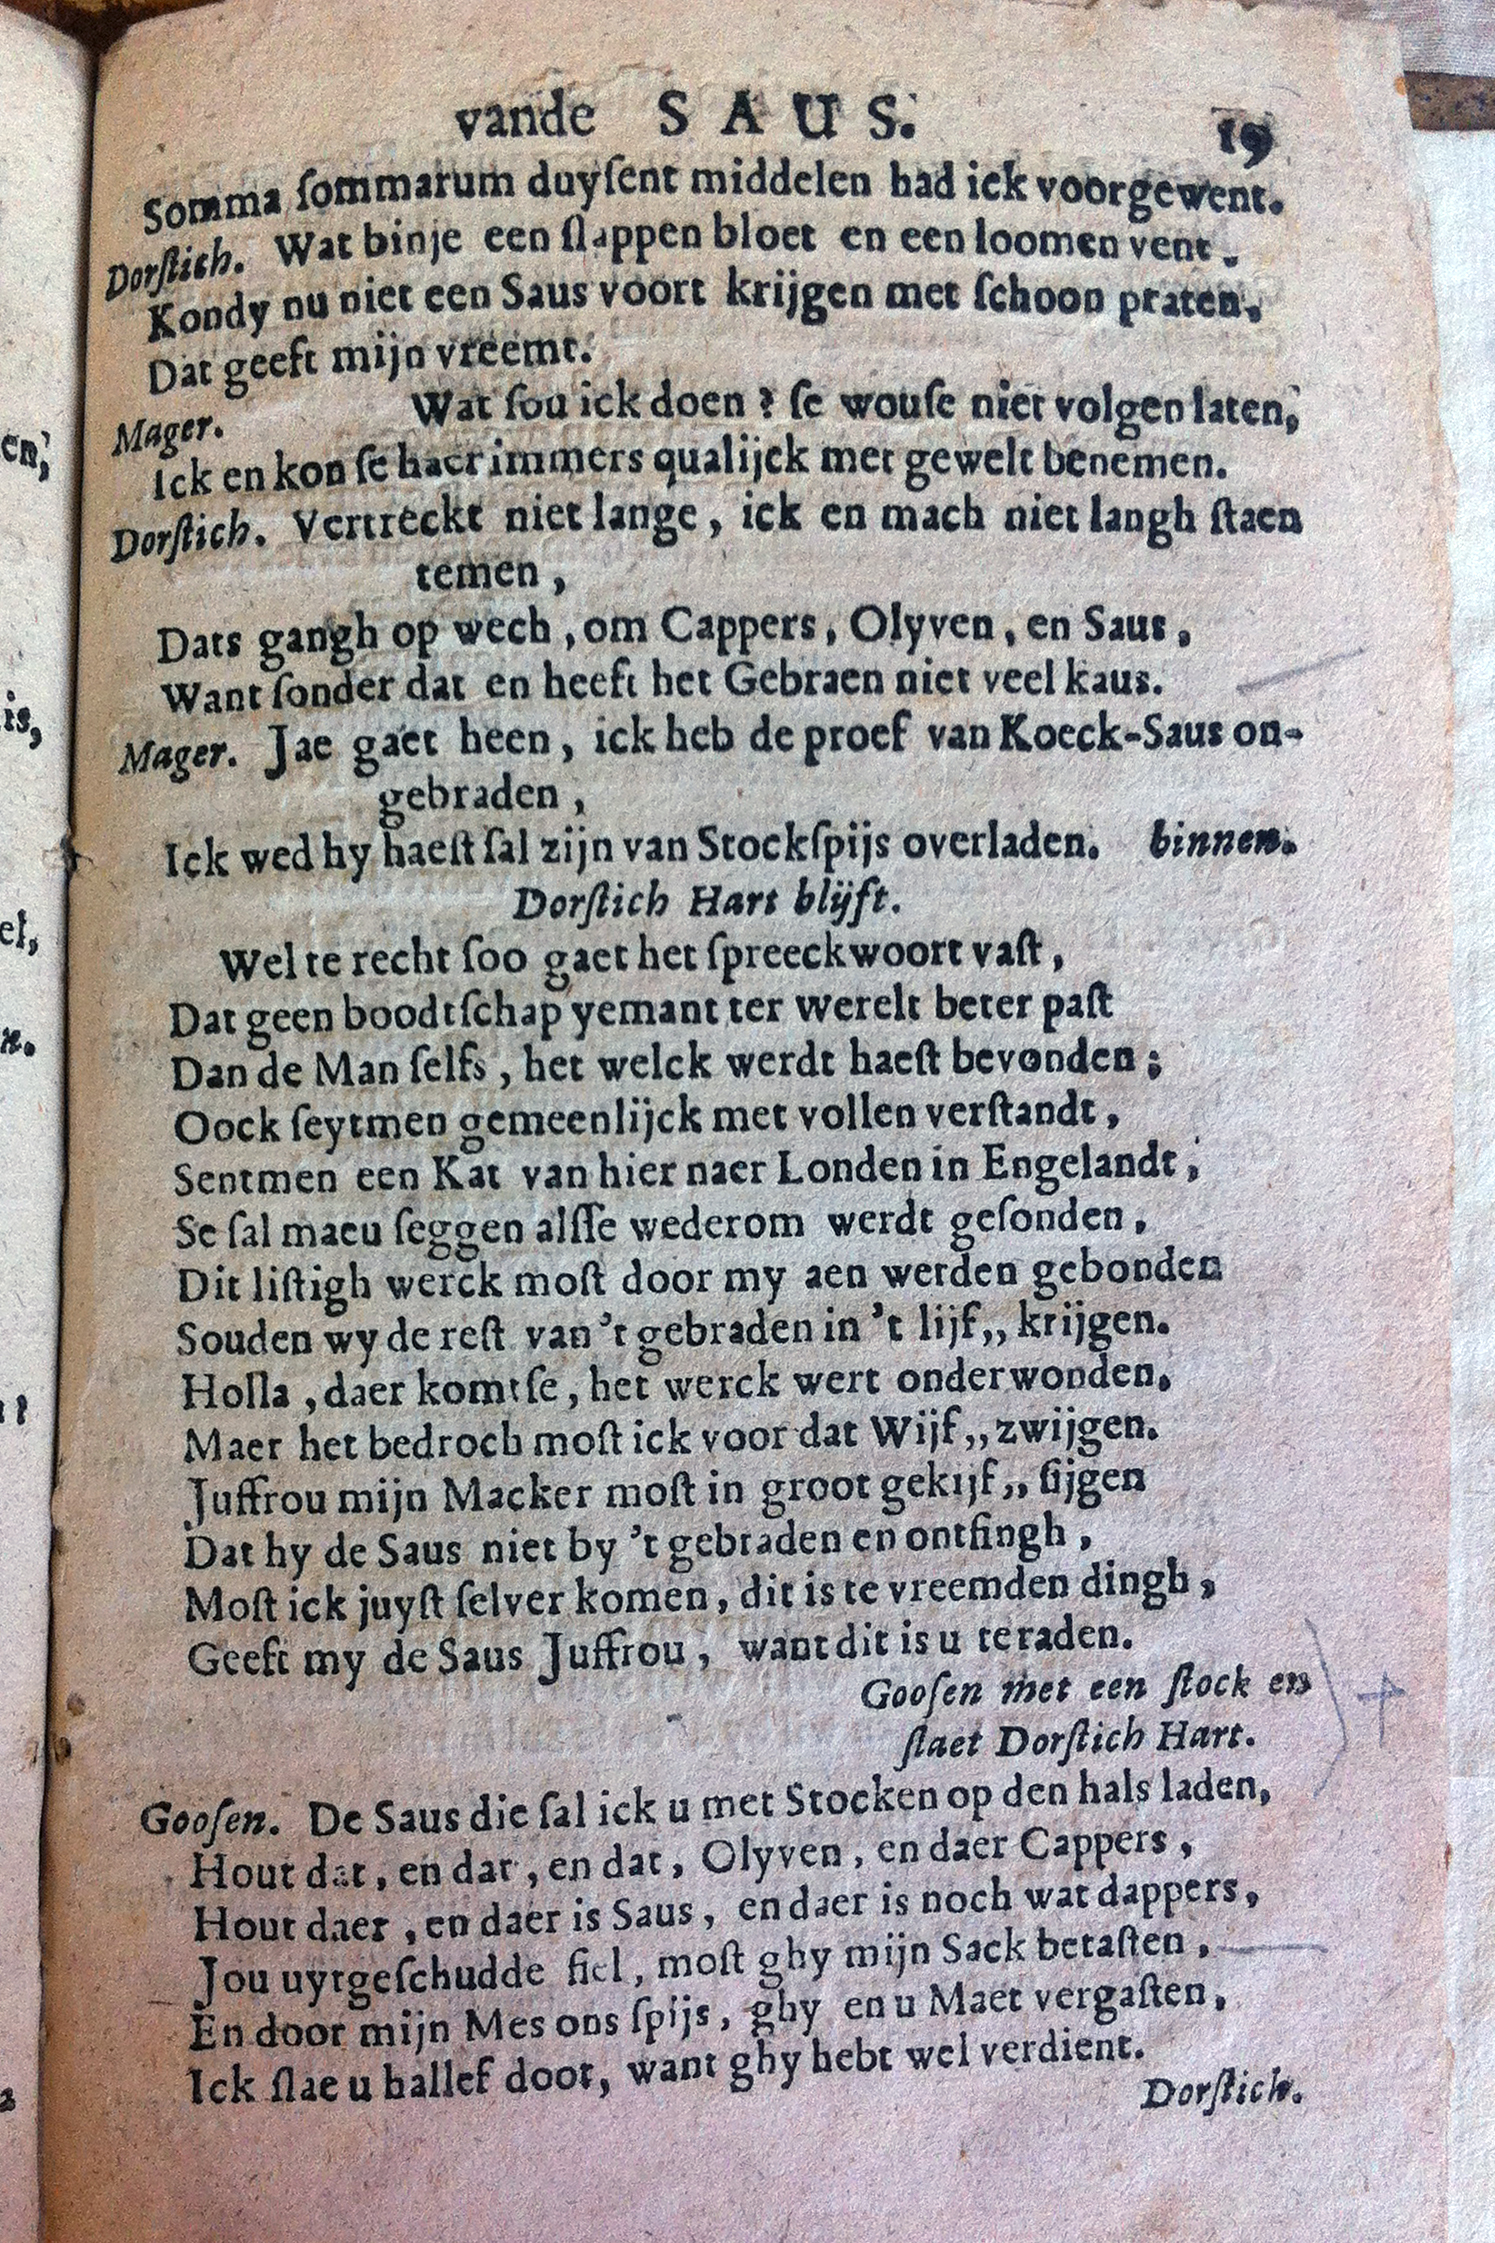 vande SAUS. 19
Somma ſommarum duyſent middelen had ick voorgewent.
Dorſtich. Wat binje een ſlappen bloet en een loomen vent.
Kondy nu niet een Saus voort krijgen met ſchoon praten,
Dat geeft mijn vreemt.
Mager. Wat ſou ick doen? ſe wouſe niet volgen laten,
Ick en kon ſe haer immers qualijck met gewelt benemen.
Dorſtich. Vertreckt niet lange, ick en mach niet langh ſtaen
temen,
Dats gangh op wech, om Cappers, Olyven, en Saus,
Want ſonder dat en heeft het Gebraen niet veel kaus.
Mager. Jae gaet heen, ick heb de proef van Koeck-Saus on-
gebraden,
Ick wed hy haeſt ſal zijn van Stockſpijs overladen. binnen.
Dorſtich Hart blijft.
Wel te recht ſoo gaet het ſpreeckwoort vaſt,
Dat geen boodtſchap yemant ter werelt beter paſt
Dan de Man ſelfs, het welck werdt haeſt bevonden;
Oock ſeytmen gemeenlijck met vollen verſtandt,
Sentmen een Kat van hier naer Londen in Engelandt,
Se ſal maeu ſeggen alſſe wederom werdt geſonden,
Dit liſtigh werck moſt door my aen werden gebonden
Souden wy de reſt van 't gebraden in 't lijf,, krijgen.
Holla, daer komtſe, het werck wert onderwonden,
Maer het bedroch moſt ick voor dat Wijf,, zwijgen.
Juffrou mijn Macker moſt in groot gekijf,, ſijgen
Dat hy de Saus niet by 't gebraden en ontfingh,
Moſt ick juyſt ſelver komen, dit is te vreemden dingh,
Geeft my de Saus Juffrou, want dit is u te raden.
Gooſen met een ſtock en
ſlaet Dorſtich Hart.
Gooſen. De Saus die ſal ick u met Stocken op den hals laden,
Hout dat, en dat, en dat, Olyven, en daer Cappers,
Hout daer, en daer is Saus, en daer is noch wat dappers,
Jou uytgeſchudde fiel, moſt ghy mijn Sack betaſten,
En door mijn Mes ons ſpijs, ghy en u Maet vergaſten,
Ick ſlae u hallef doot, want ghy hebt wel verdient.
Dorſtich.